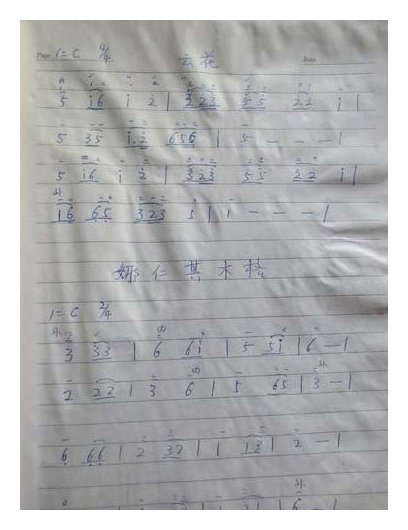 Page 1=C 4/4 云花 Date
5 i6 i 2 | 323 55 22 i |
5 35 i.2 656 | 5 - - - |
5 i6 i 2 | 323 55 22 i |
16 65 323 5 | 1 - - - |
娜仁其木格
1=C 2/4
3 33 | 6 6i | 5 5i | 6 - |
2 22 | 3 6 | 5 65 | 3 - |
6 66 | 2 32 | 1 13 | 2 - |